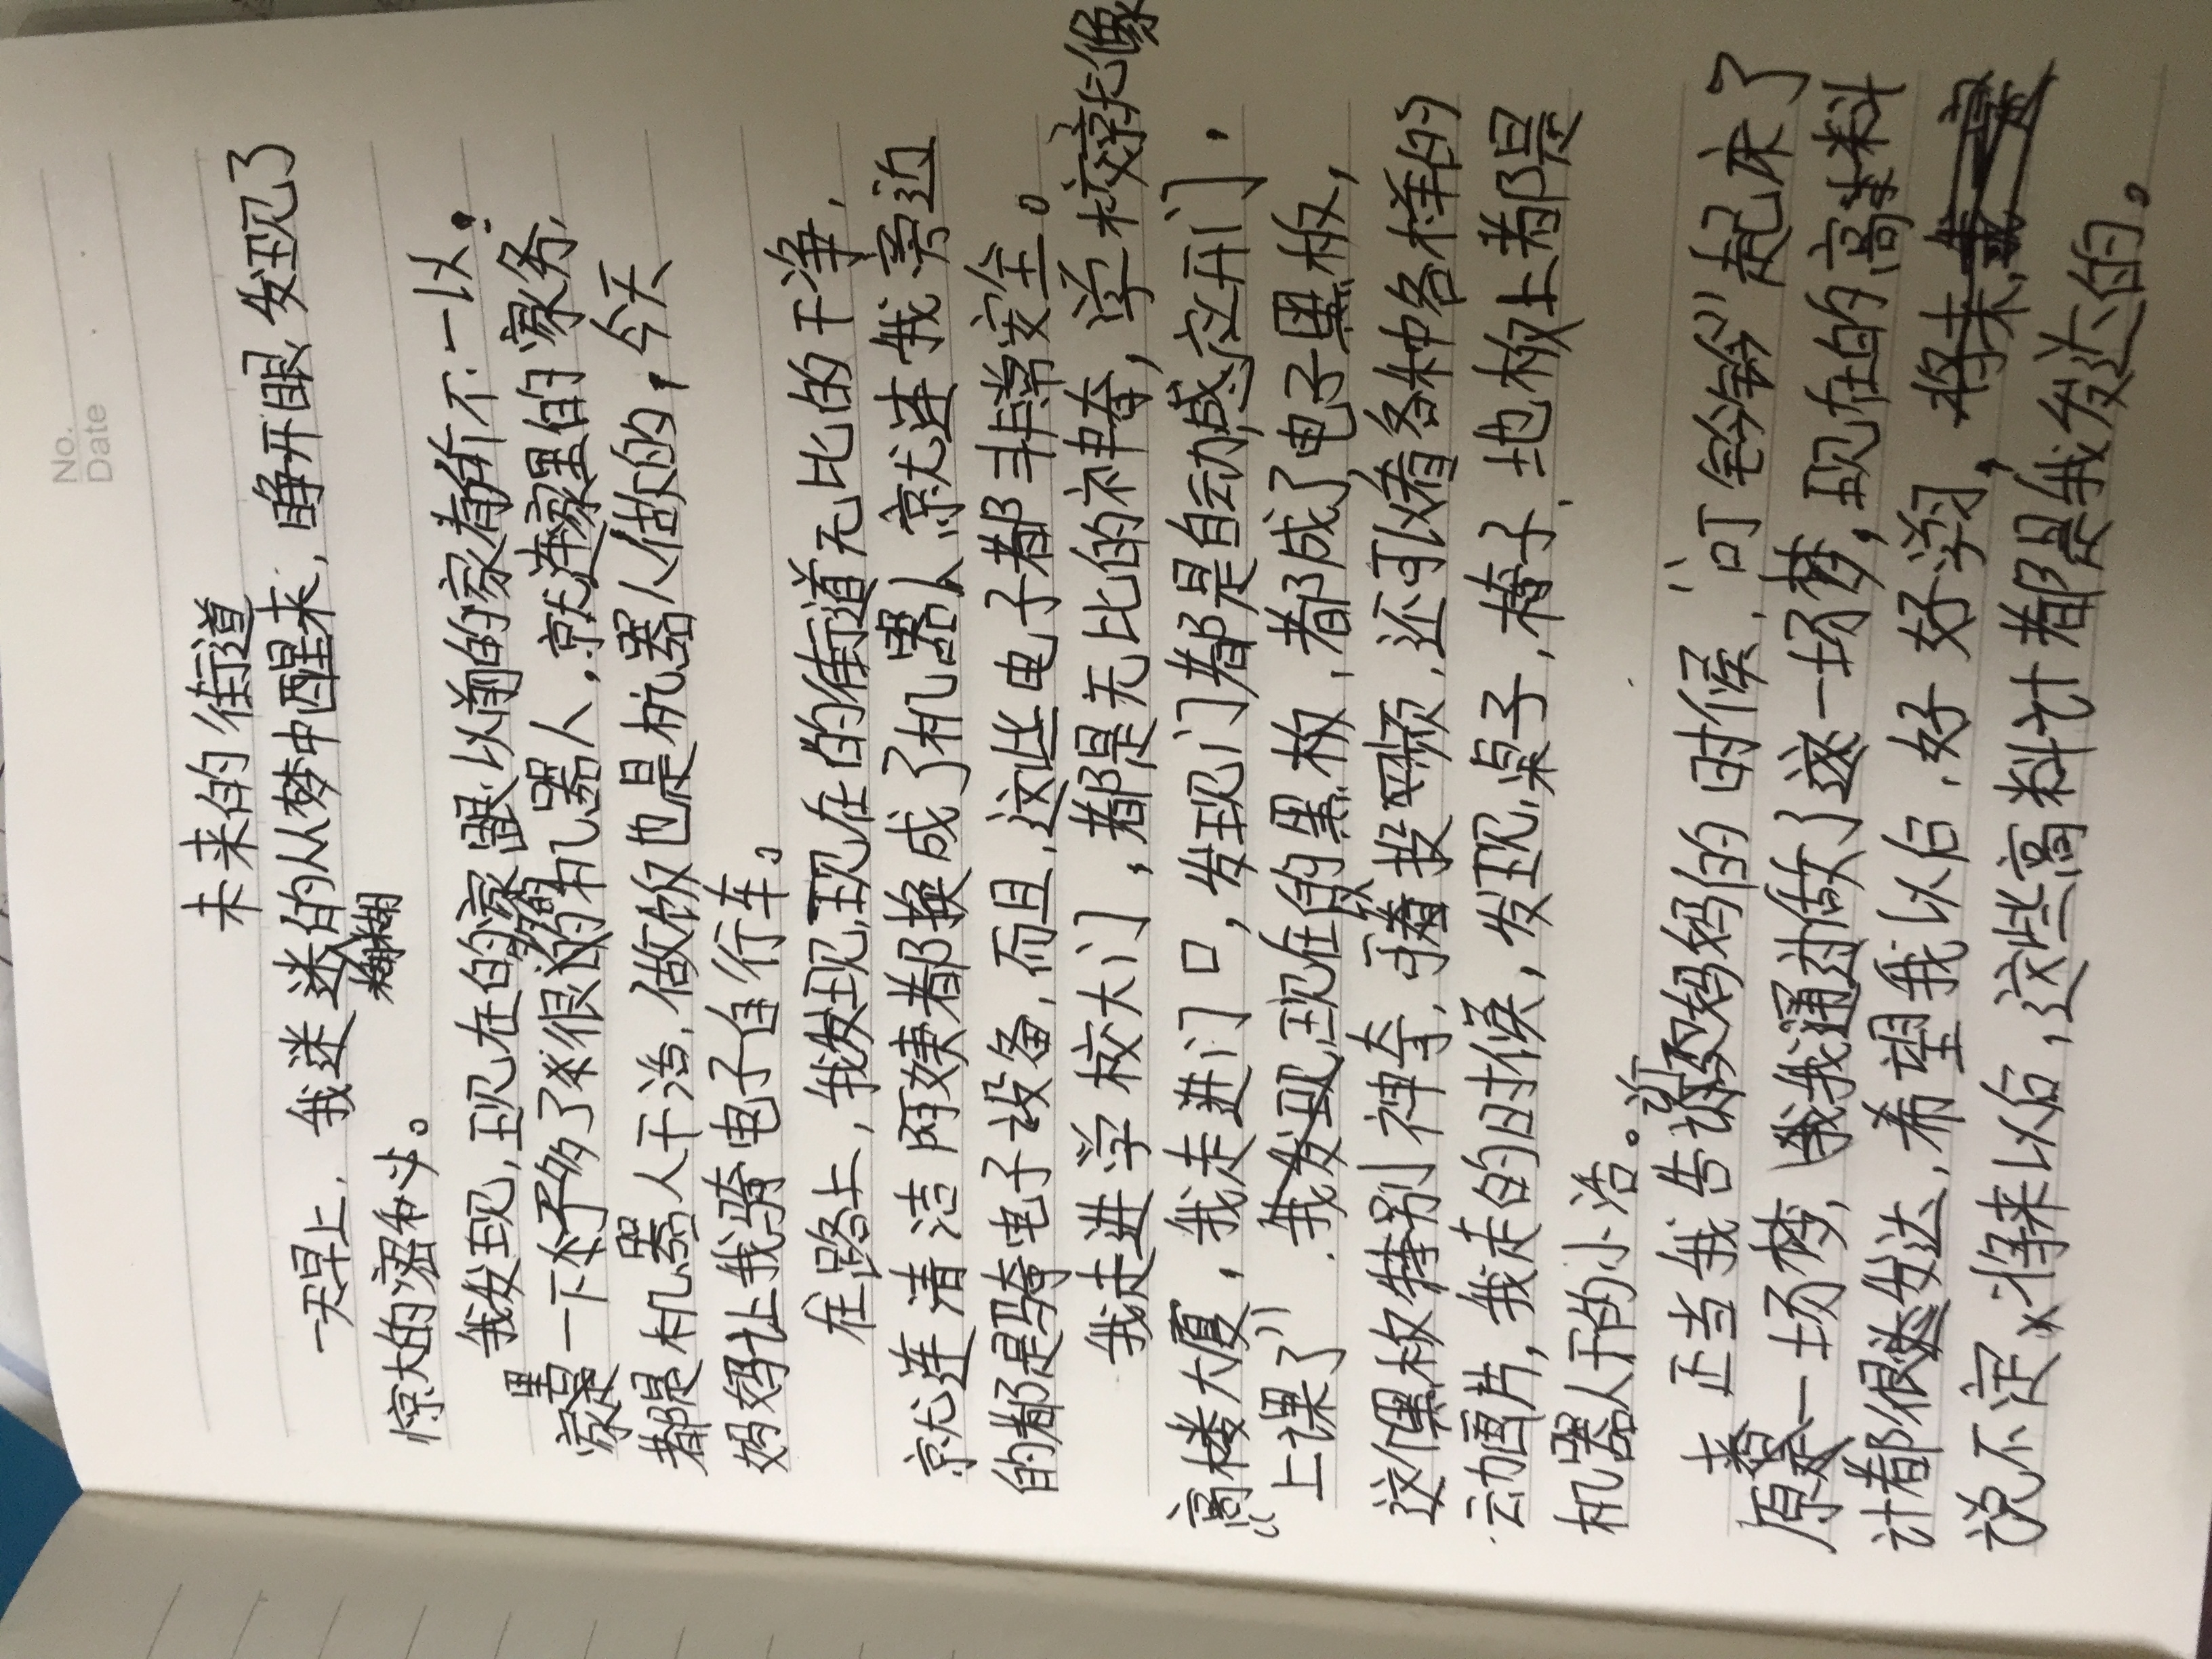 No.
Date
未来的街道
一天早上,我迷迷的从梦中醒来,睁开眼,发现了
糊
惊大的密秘。
我发现,现在的家跟以前的家有所不一以.
家里一下子多了很多的机器人,就连家里的家务,
都是机器人干活,做饭也是机器人做的,今天
妈妈让我骑电子自行车。
在路上,我发现,现在的街道无比的干净,
就连清洁阿姨都换成了机器人就连我旁边
的都是骑电子设备,而且,这些电子都非常安全。
我走进学校大门,都是无比的神奇,学校就像
高楼大厦,我走进门口,发现门都是自动感应开门,
“上课了”我发现,现在的黑板,都成了电子黑板,
这个黑板特别神奇,可以投视频,还可以看各种各样的
动画片,我走的时候,发现,桌子,椅子,地板上都是
机器人干的小活。
正当我告诉妈妈的时候,“叮铃铃”起床了
原来一场梦,我通过做了这一场梦,现在的高科
计都很发达,希望我以后,好好学习,将来,
说不定将来以后,这些高科计都是我发达的。